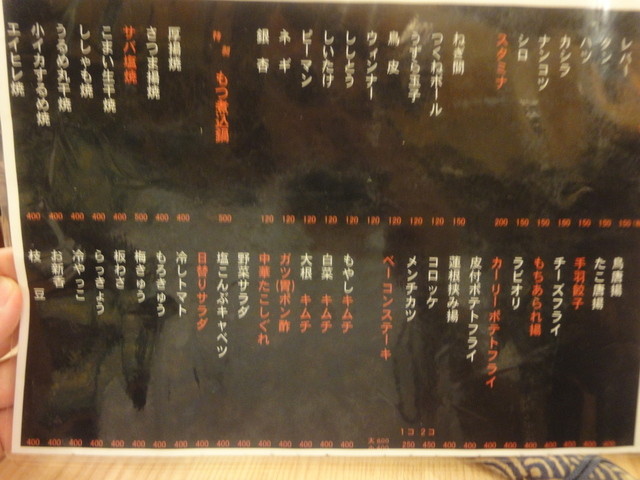 レバー
タン
ハツ
カシラ
ナンコツ
シロ
スタミナ
ねぎ間
つくねボール
うずら玉子
鳥皮
ウィンナー
ししとう
しいたけ
ピーマン
ネギ
銀杏
特製 もつ煮込鍋
厚揚焼
さつま揚焼
サバ塩焼
こまい生干焼
ししゃも焼
うるめ丸干焼
小イカするめ焼
エイヒレ焼
400 400 400 400 400 500 400 400 500 120 120 120 120 120 120 120 120 120 150 200 150 150 150 150 150
鳥唐揚
たこ唐揚
手羽餃子
チーズフライ
もちあられ揚
ラビオリ
カーリーポテトフライ
皮付ポテトフライ
蓮根挟み揚
コロッケ
メンチカツ
ベーコンステーキ
もやしキムチ
白菜 キムチ
大根 キムチ
ガツ(胃)ポン酢
中華たこしぐれ
野菜サラダ
塩こんぶキャベツ
日替りサラダ
冷しトマト
もろきゅう
梅きゅう
板わさ
らっきょう
冷やっこ
お新香
枝豆
13:23
400 400 400 400 400 400 400 400 400 400 400 400 400 400 400 400 250 400 400 400 400 400 400 400 400 400 400